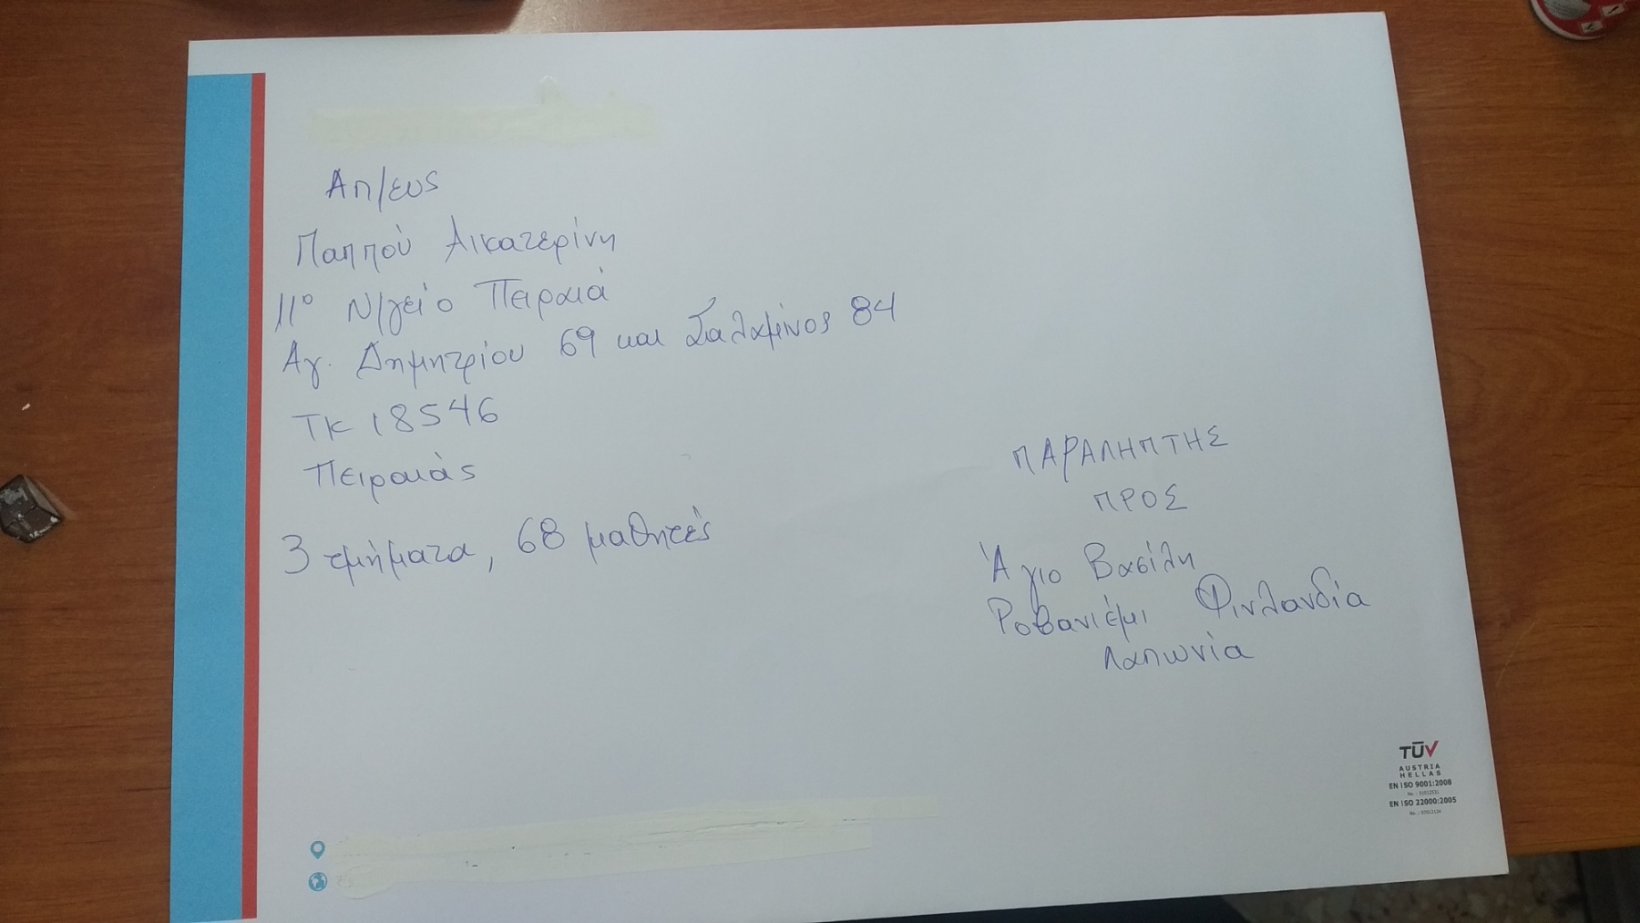 Απ/ευς
Παππού Αικατερίνη
11º Ν/γείο Πειραιά
Αγ. Δημητρίου 69 και Σαλαμίνος 84
ΤΚ 18546
Πειραιάς
3 τμήματα, 68 μαθητές
ΠΑΡΑΛΗΠΤΗΣ
ΠΡΟΣ
Άγιο Βασίλη
Ροβανιέμι Φινλανδία
Λαπωνία
TÜV
AUSTRIA
HELLAS
EN ISO 9001:2008
EN ISO 22000:2005